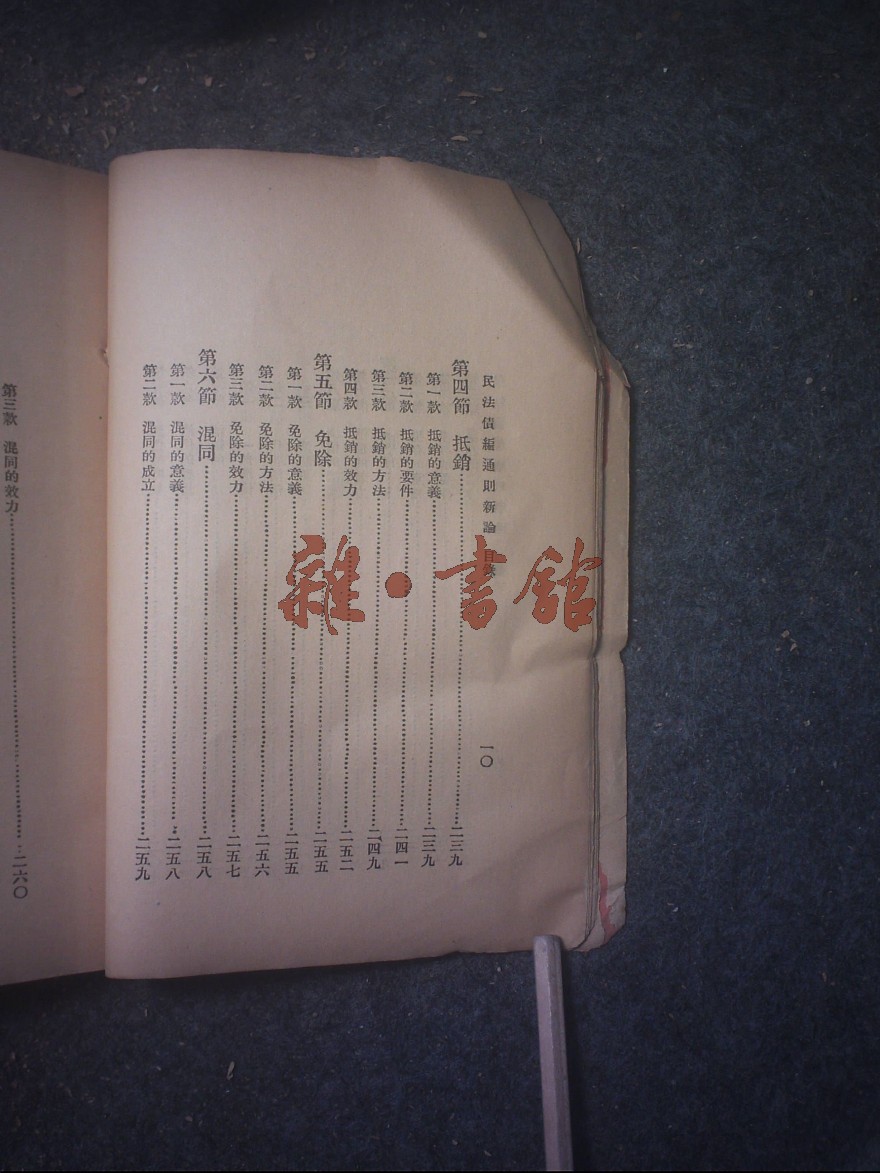 民法債編通則新論 目錄 一〇
第四節 抵銷……二三九
第一款 抵銷的意義……二三九
第二款 抵銷的要件……二四一
第三款 抵銷的方法……二四九
第四款 抵銷的效力……二五二
第五節 免除……二五五
第一款 免除的意義……二五五
第二款 免除的方法……二五六
第三款 免除的效力……二五七
第六節 混同……二五八
第一款 混同的意義……二五八
第二款 混同的成立……二五九
第三款 混同的效力……二六〇
雜·書館